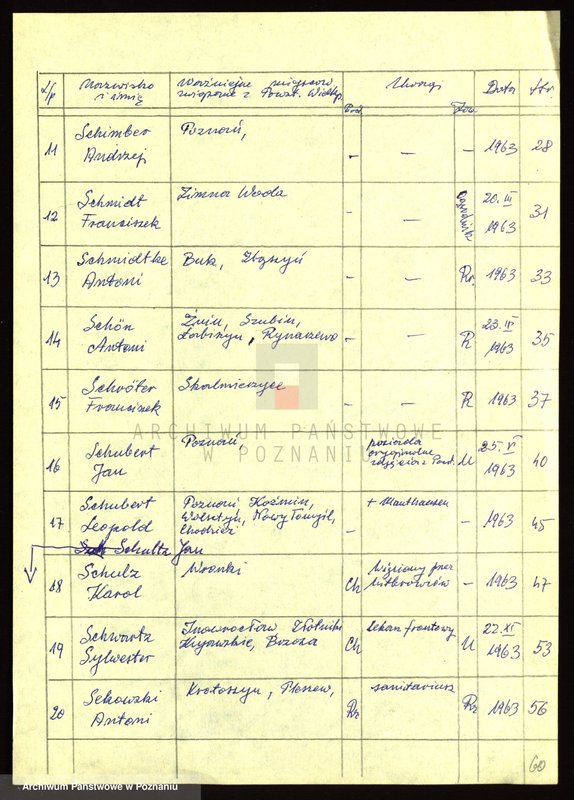 L/p Nazwisko i imię Ważniejsze miejscow. związane z Powst. Wielkp. Uwagi Data Str.
Poch. Zaw.
11 Schimber Andrzej Poznań, – – – 1963 28
12 Schmidt Franciszek Zimna Woda – – ogrodnik 20.III 1963 31
13 Schmidtke Antoni Buk, Zbąszyń – – Rz. 1963 33
14 Schön Antoni Żnin, Szubin, Łabiszyn, Rynarzewo – – R 23.IV 1963 35
15 Schröter Franciszek Skalmierzyce – – R 1963 37
16 Schubert Jan Poznań, posiada oryginalne zdjęcia z Powst. U 25.VI 1963 40
17 Schubert Leopold Poznań Koźmin, Wolsztyn, Nowy Tomyśl, Chodzież – + Mauthausen – 1963 45
Schultz Jan
18 Schulz Karol Wronki Ch Więziony przez hitlerowców – 1963 47
19 Schwartz Sylwester Inowrocław Złotniki Kujawskie, Brzoza Ch lekarz frontowy U 22.XI 1963 53
20 Sekowski Antoni Krotoszyn, Pleszew, Rz sanitariusz Rz 1963 56
60
ARCHIWUM PAŃSTWOWE
W POZNANIU
Archiwum Państwowe w Poznaniu